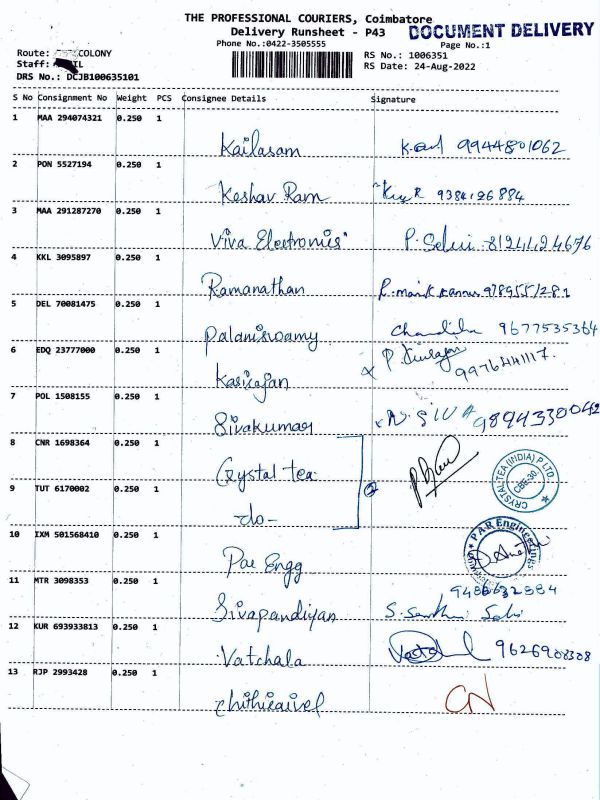 THE PROFESSIONAL COURIERS, Coimbatore
Delivery Runsheet - P43 DOCUMENT DELIVERY
Phone No.:0422-3505555 Page No.:1
Route: COLONY RS No.: 1006351
Staff: IL RS Date: 24-Aug-2022
DRS No.: DCJB100635101
S No Consignment No Weight PCS Consignee Details Signature
1 MAA 294074321 0.250 1
Kailasam 9944801062
2 PON 5527194 0.250 1
Keshav Ram 9384126884
3 MAA 291287270 0.250 1
Viva Electronics P. Selvi 8124124676
4 KKL 3095897 0.250 1
Ramanathan
5 DEL 70081475 0.250 1
Palaniswamy 9677535364
6 EDQ 23777000 0.250 1
Kasirajan
7 POL 1508155 0.250 1
Sivakumar N. SIVA 9894330042
8 CNR 1698364 0.250 1
Crystal tea CRYSTAL TEA (INDIA) P. LTD. CBE-30
9 TUT 6170002 0.250 1
-do-
10 IXM 501568410 0.250 1
Par Engg PAR Engineerings
11 MTR 3098353 0.250 1
Sivapandiyan
12 KUR 693933813 0.250 1
Vatchala 9626908308
13 RJP 2993428 0.250 1
CN